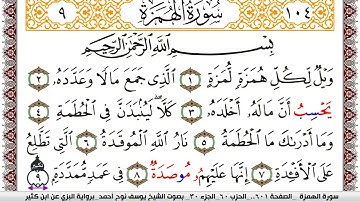 ٩ سُورَةُ الْهُمَزَةِ ١٠٤
بِسْمِ اللَّهِ الرَّحْمَٰنِ الرَّحِيمِ
وَيْلٌ لِكُلِّ هُمَزَةٍ لُمَزَةٍ ١ الَّذِي جَمَعَ مَالًا وَعَدَّدَهُ ٢
يَحْسِبُ أَنَّ مَالَهُ أَخْلَدَهُ ٣ كَلَّا لَيُنْبَذَنَّ فِي الْحُطَمَةِ ٤
وَمَا أَدْرَىٰكَ مَا الْحُطَمَةُ ٥ نَارُ اللَّهِ الْمُوقَدَةُ ٦ الَّتِي تَطَّلِعُ
عَلَى الْأَفْئِدَةِ ٧ إِنَّهَا عَلَيْهِمُ مُوصَدَةٌ ٨ فِي عَمَدٍ مُمَدَّدَةٍ ٩
سورة الهمزة .. الصفحة ٦٠١.. الحزب ٦٠ .الجزء ٣٠ . بصوت الشيخ يوسف نوح أحمد .برواية البزي عن ابن كثير